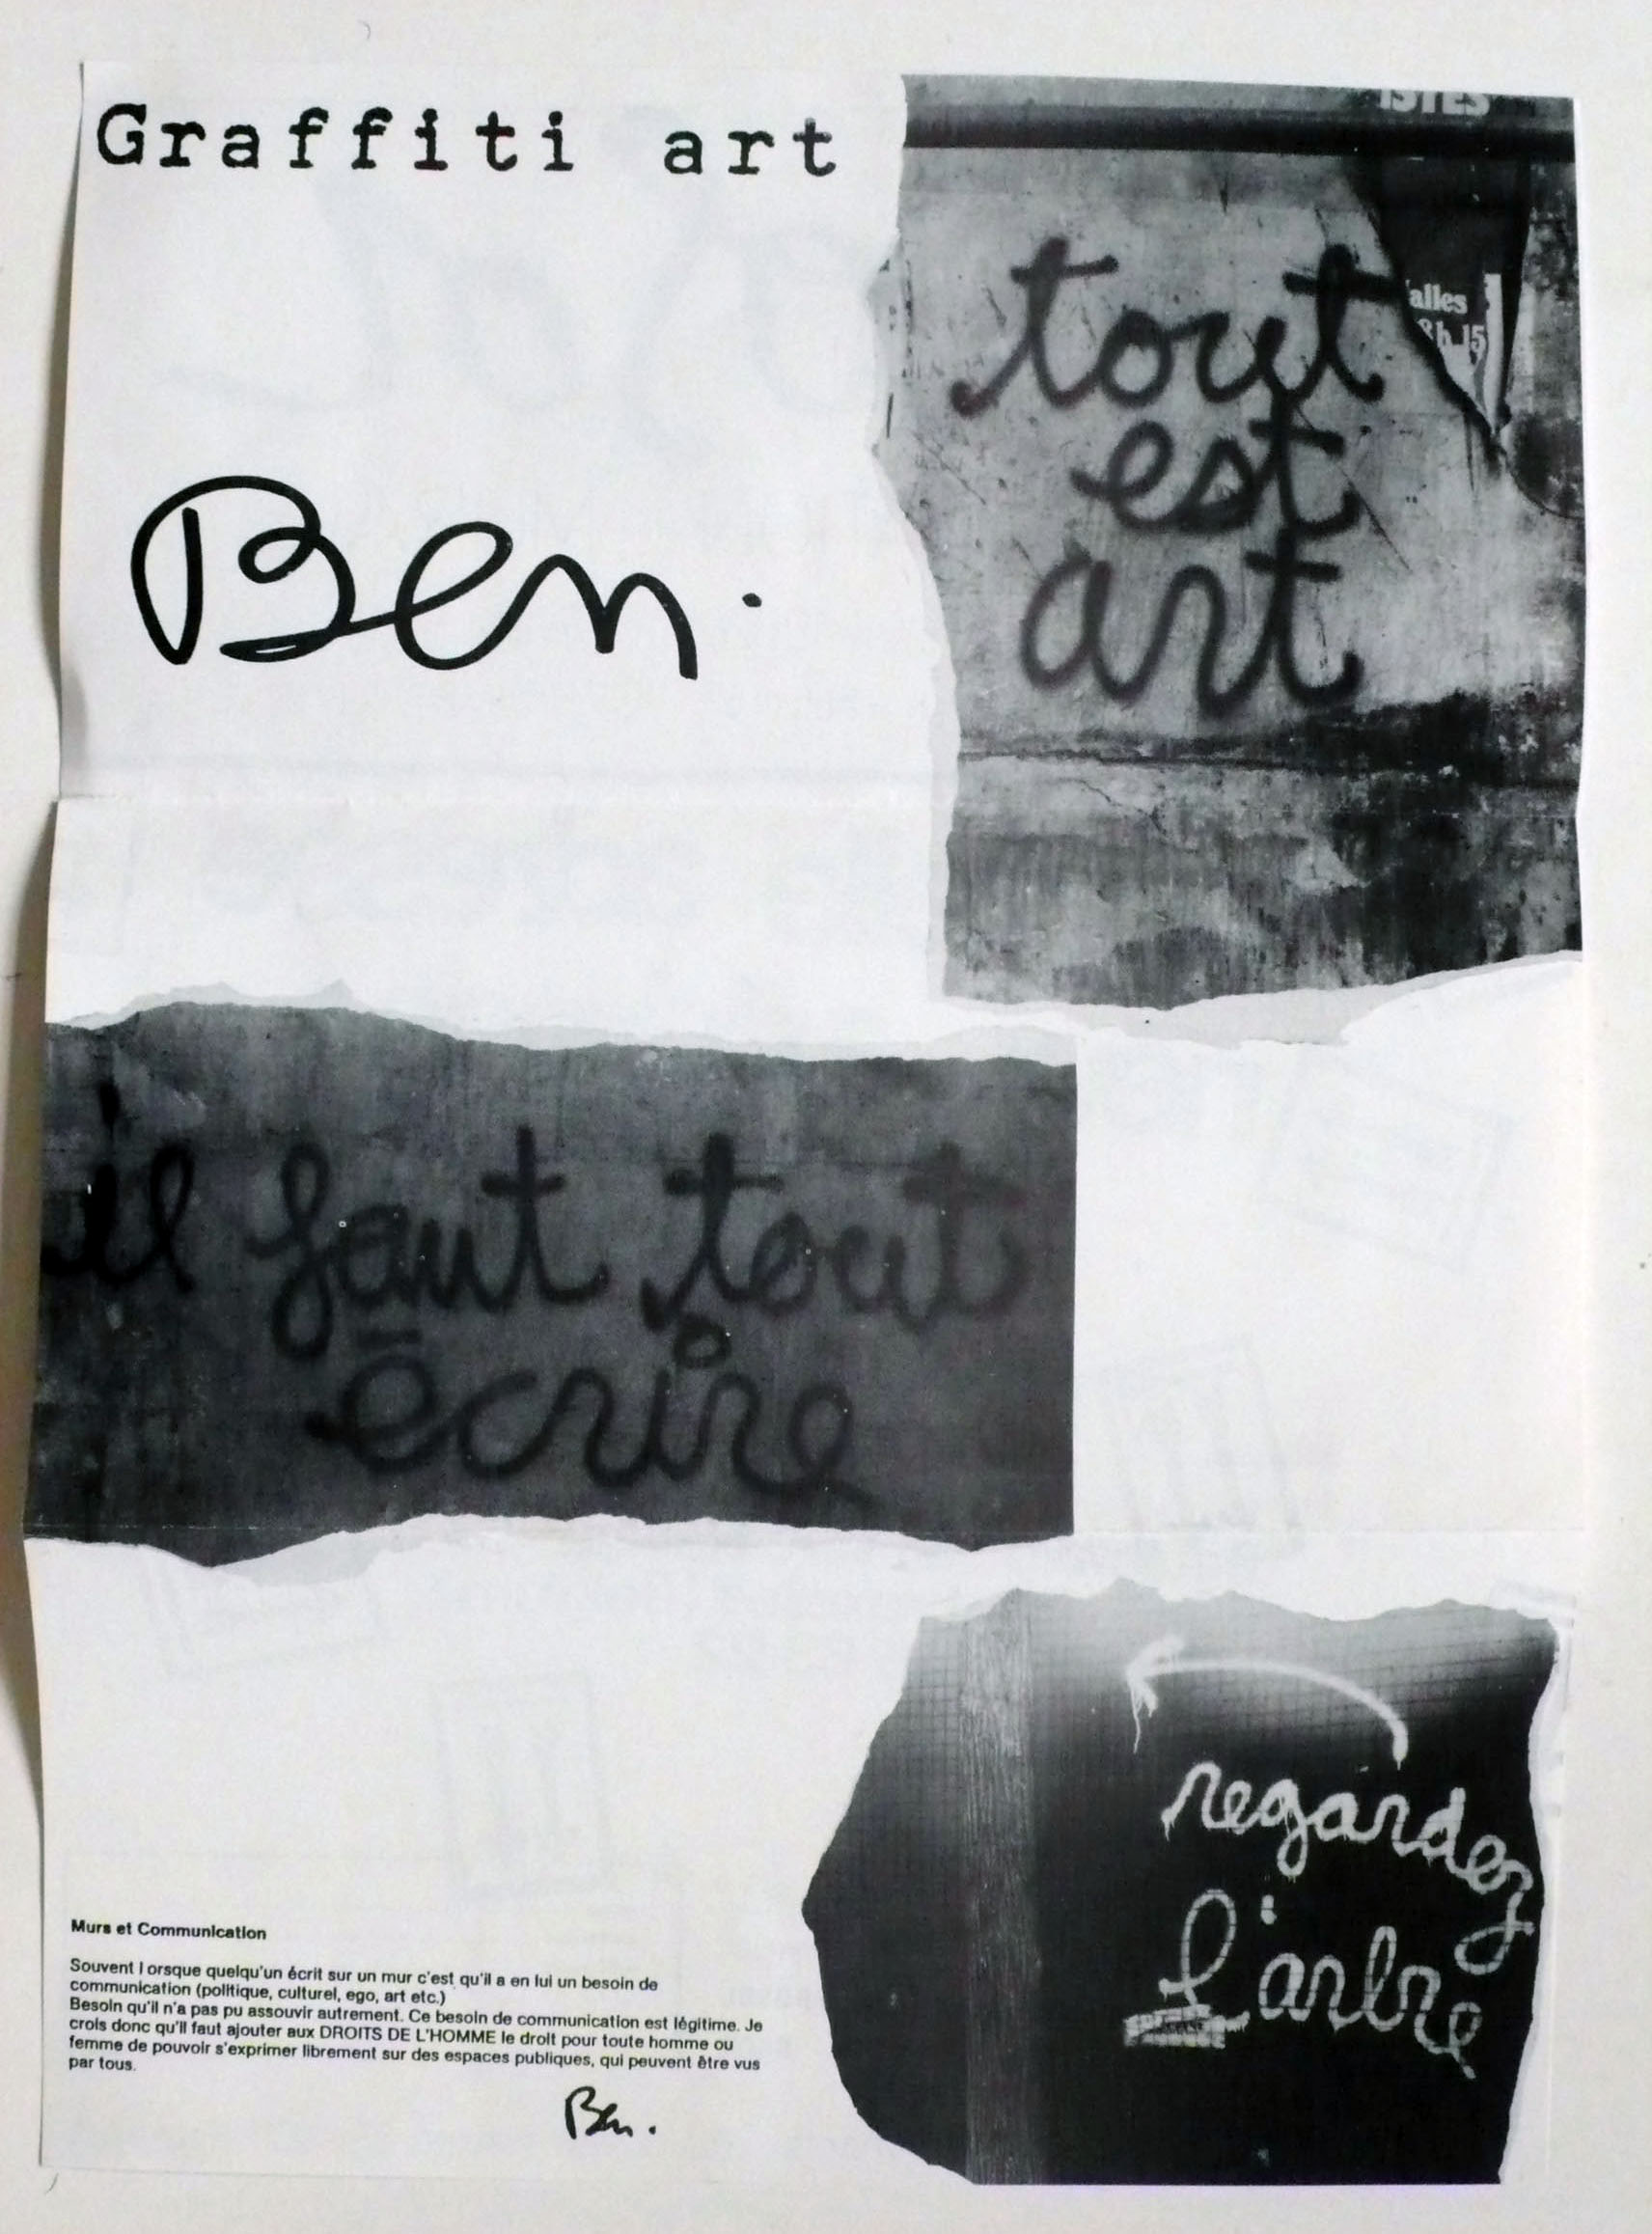 Graffiti art
ISTES
alles
8h.15
tout
est
art
Ben.
il faut tout
écrire
regardez
l'arbre
Murs et Communication
Souvent l orsque quelqu'un écrit sur un mur c'est qu'il a en lui un besoin de
communication (politique, culturel, ego, art etc.)
Besoin qu'il n'a pas pu assouvir autrement. Ce besoin de communication est légitime. Je
crois donc qu'il faut ajouter aux DROITS DE L'HOMME le droit pour toute homme ou
femme de pouvoir s'exprimer librement sur des espaces publiques, qui peuvent être vus
par tous.
Ben.